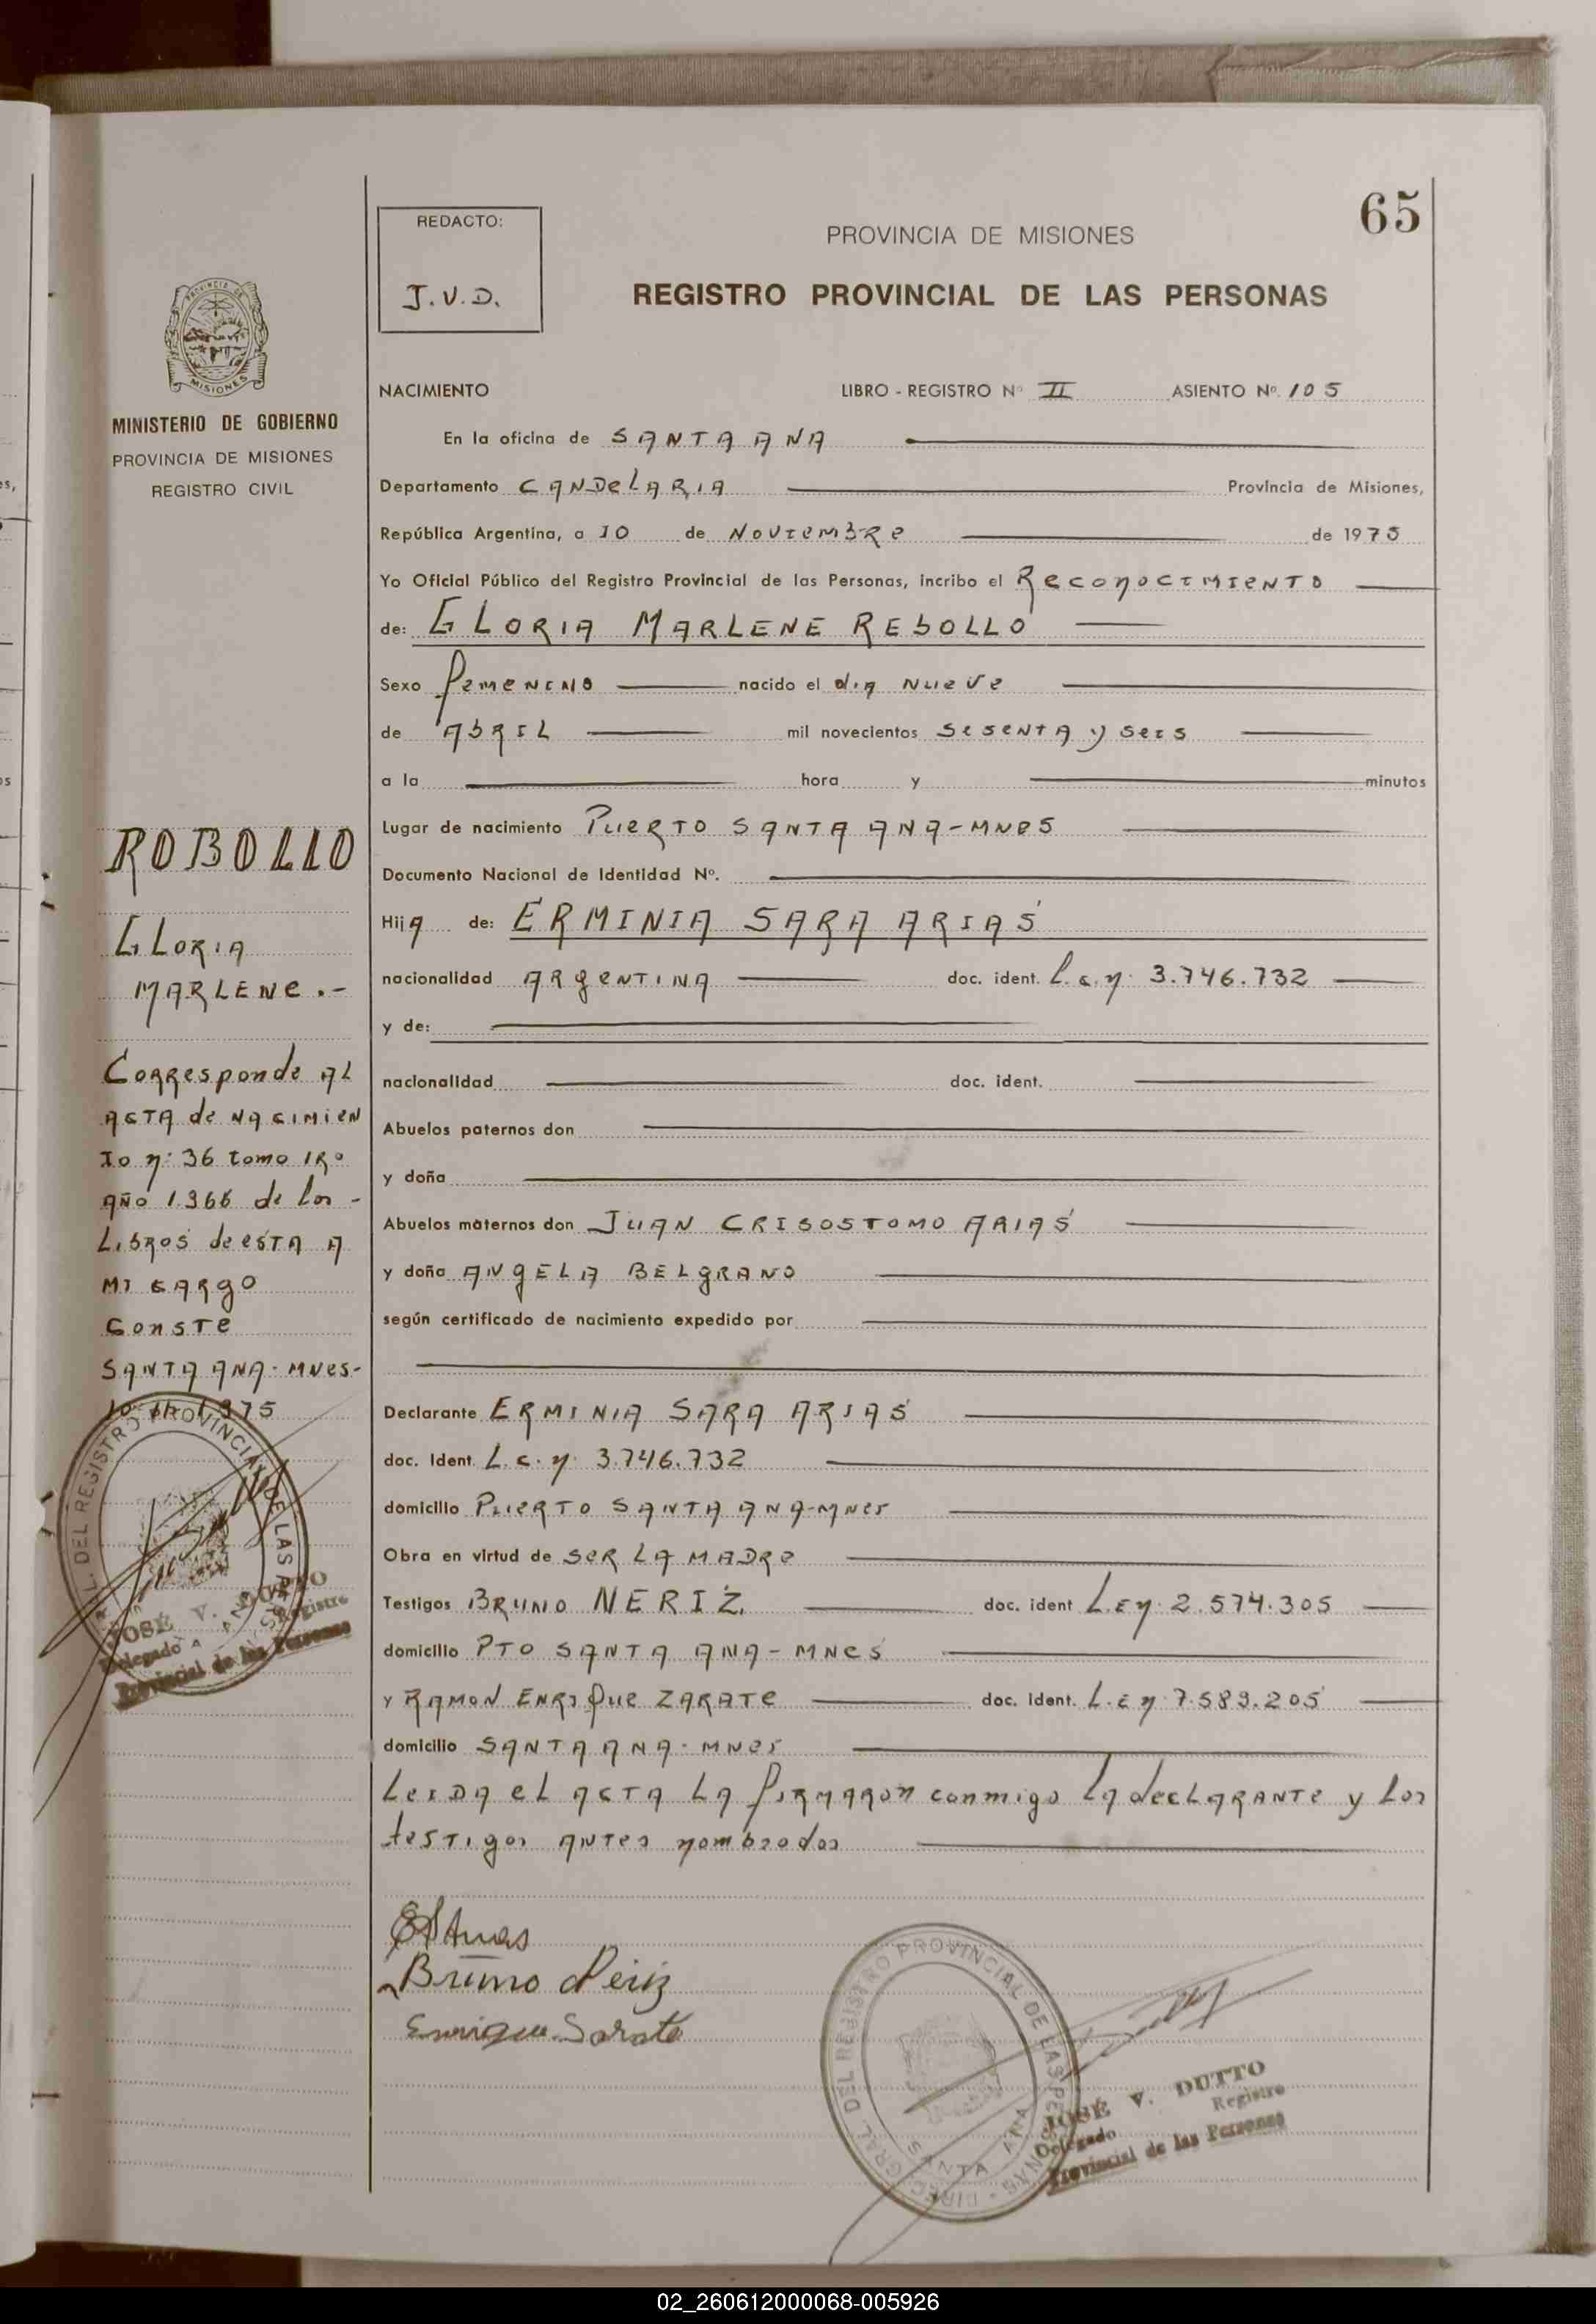 65
REDACTO:
J.V.D.
PROVINCIA DE MISIONES
REGISTRO PROVINCIAL DE LAS PERSONAS
MISIONES
MINISTERIO DE GOBIERNO
PROVINCIA DE MISIONES
REGISTRO CIVIL
NACIMIENTO LIBRO - REGISTRO Nº II ASIENTO Nº. 105
En la oficina de SANTA ANA
Departamento CANDELARIA Provincia de Misiones,
República Argentina, a 10 de NOVIEMBRE de 1975
Yo Oficial Público del Registro Provincial de las Personas, incribo el RECONOCIMIENTO
de: GLORIA MARLENE REBOLLO
Sexo femenino nacido el dia nueve
de ABRIL mil novecientos sesenta y seis
a la hora y minutos
Lugar de nacimiento PUERTO SANTA ANA-MNES
Documento Nacional de Identidad Nº.
Hija de: ERMINIA SARA ARIAS
nacionalidad ARGENTINA doc. ident. L.c.n. 3.746.732
y de:
nacionalidad doc. ident.
Abuelos paternos don
y doña
Abuelos maternos don JUAN CRISOSTOMO ARIAS
y doña ANGELA BELGRANO
según certificado de nacimiento expedido por
Declarante ERMINIA SARA ARIAS
doc. Ident. L.c.n. 3.746.732
domicilio PUERTO SANTA ANA-MNES
Obra en virtud de SER LA MADRE
Testigos BRUNO NERIZ doc. ident L.E n. 2.574.305
domicilio PTO SANTA ANA-MNES
y RAMON ENRIQUE ZARATE doc. ident. L.E n 7.589.205
domicilio SANTA ANA-MNES
Leida el ACTA LA firmaron conmigo la declarante y los
testigos antes nombrados
ROBOLLO
GLORIA
MARLENE.-
Corresponde al
acta de nacimien
to n: 36 tomo 1Rº
año 1.966 de los -
Libros de esta a
mi cargo
Conste
SANTA ANA-MNES-
10-11-1975
DEL REGISTRO PROVINCIAL DE LAS
JOSÉ V. DUTTO
Delegado Registro
Provincial de las Personas
Bruno Neriz
Enrique Sarate
DIREC. GRAL. DEL REGISTRO PROVINCIAL DE LAS PERSONAS
SANTA ANA
JOSÉ V. DUTTO
Delegado Registro
Provincial de las Personas
02_260612000068-005926